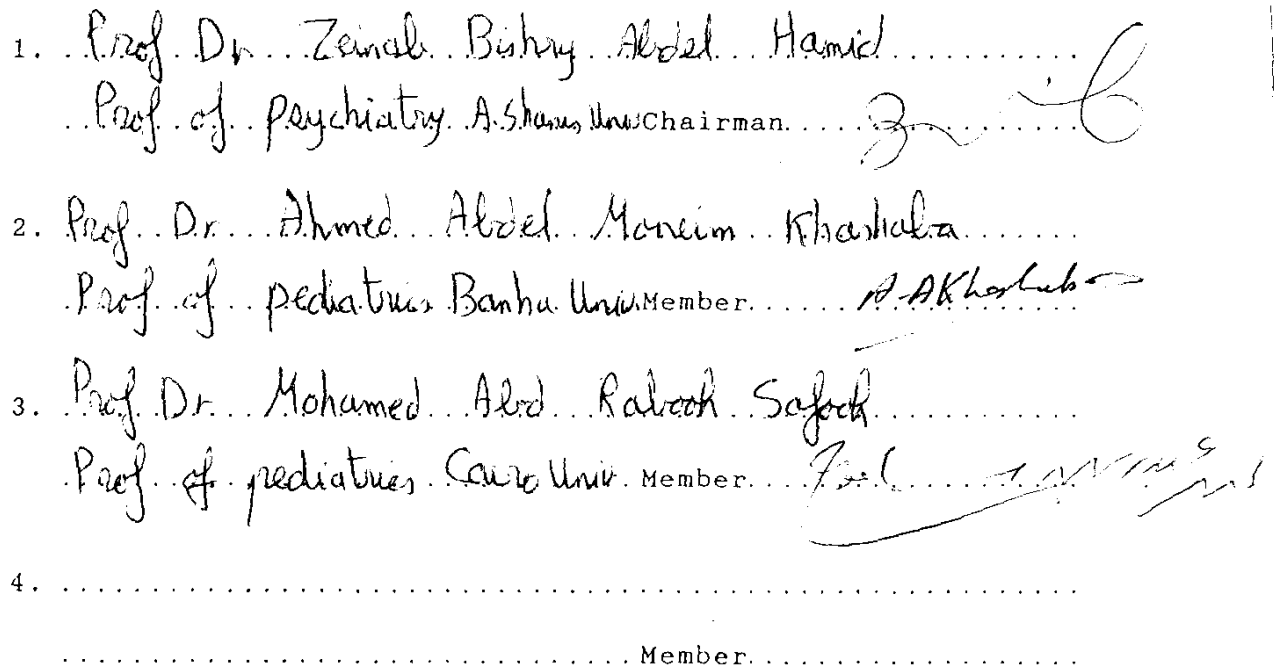 1. Prof Dr Zeinab Bishry Abdel Hamid
Prof of psychiatry A.Shams Univ Chairman
2. Prof Dr. Ahmed Abdel Moneim Khashaba
Prof of pediatrics Banha Univ. Member A-AKhashaba
3. Prof Dr. Mohamed Abd Rabooh Safooh
Prof of pediatrics Cairo Univ. Member
4.
Member